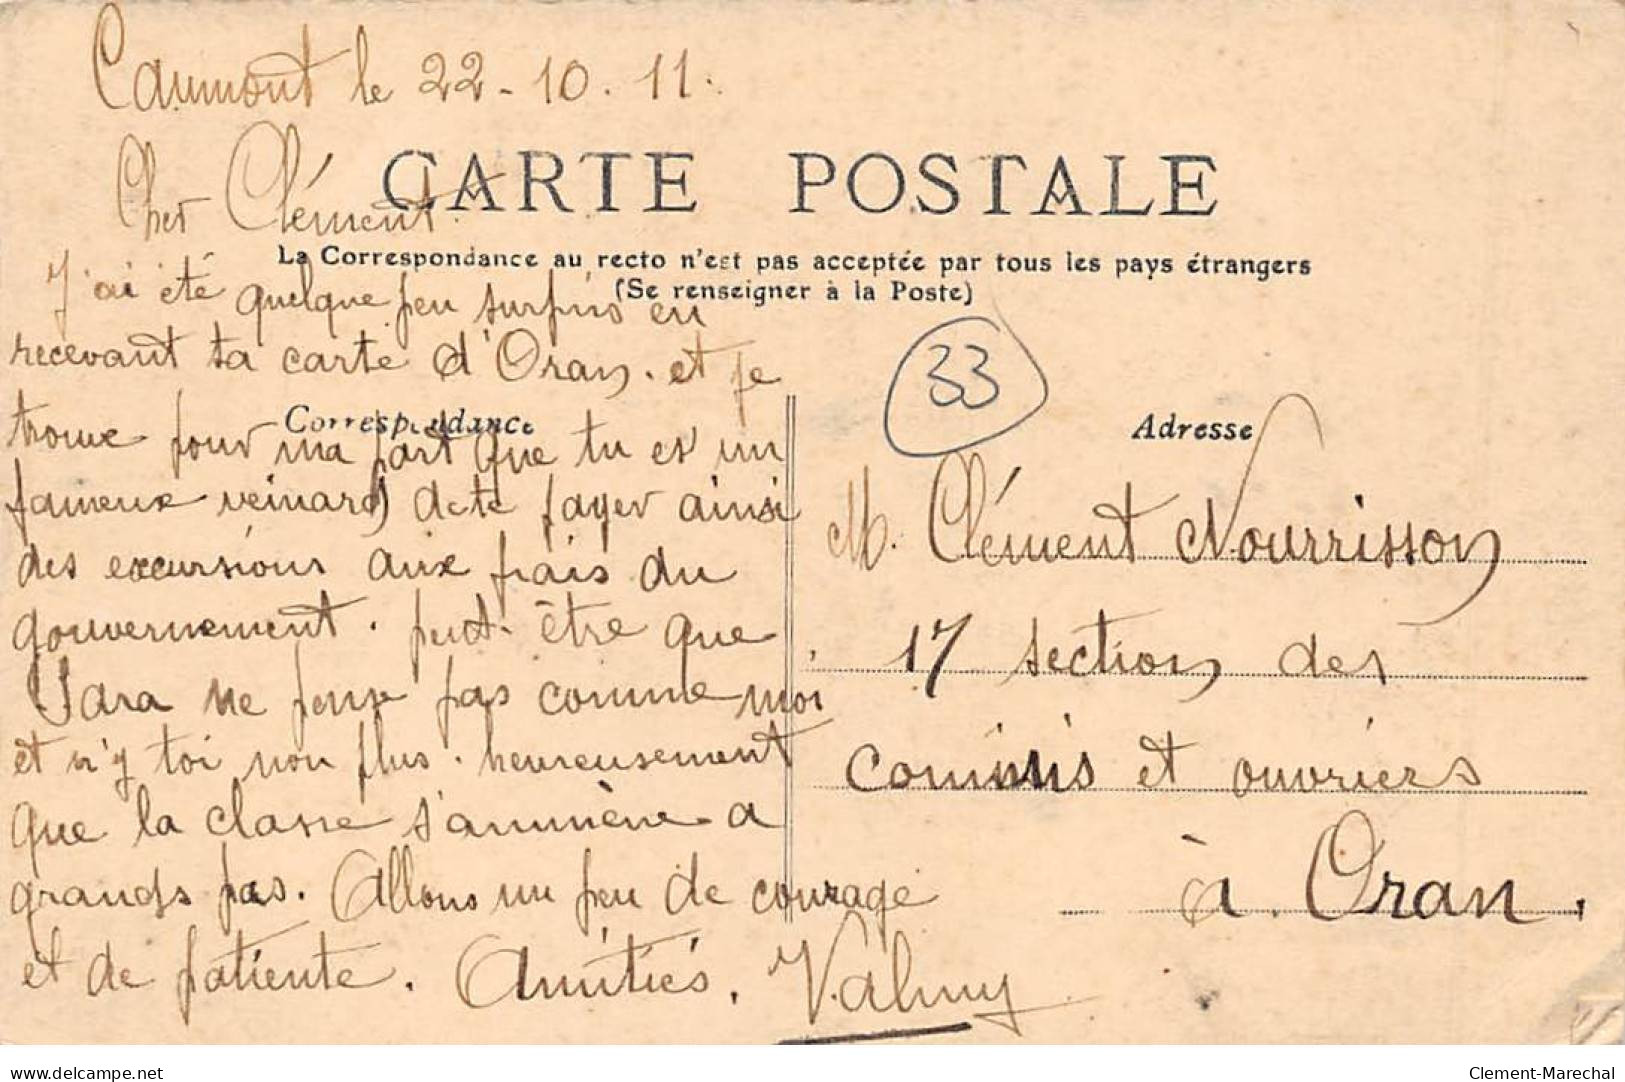 Caumont le 22-10.11.
CARTE POSTALE
Cher Clément.
La Correspondance au recto n'est pas acceptée par tous les pays étrangers
(Se renseigner à la Poste)
J'ai été quelque peu surpris en
recevant ta carte d'Oran. et je
33
Correspondance
Adresse
trouve pour ma part que tu es un
fameux veinard de te payer ainsi
des excursions aux frais du
gouvernement. peut-être que
ne peux pas comme moi
et n'y toi non plus. heureusement
que la classe s'ammène a
grands pas. Allons un peu de courage
et de patiente. Amitiés. Valmy
M. Clément Nourrisson
17 section des
commis et ouvriers
à Oran.
delcampe.net
Clement-Marechal